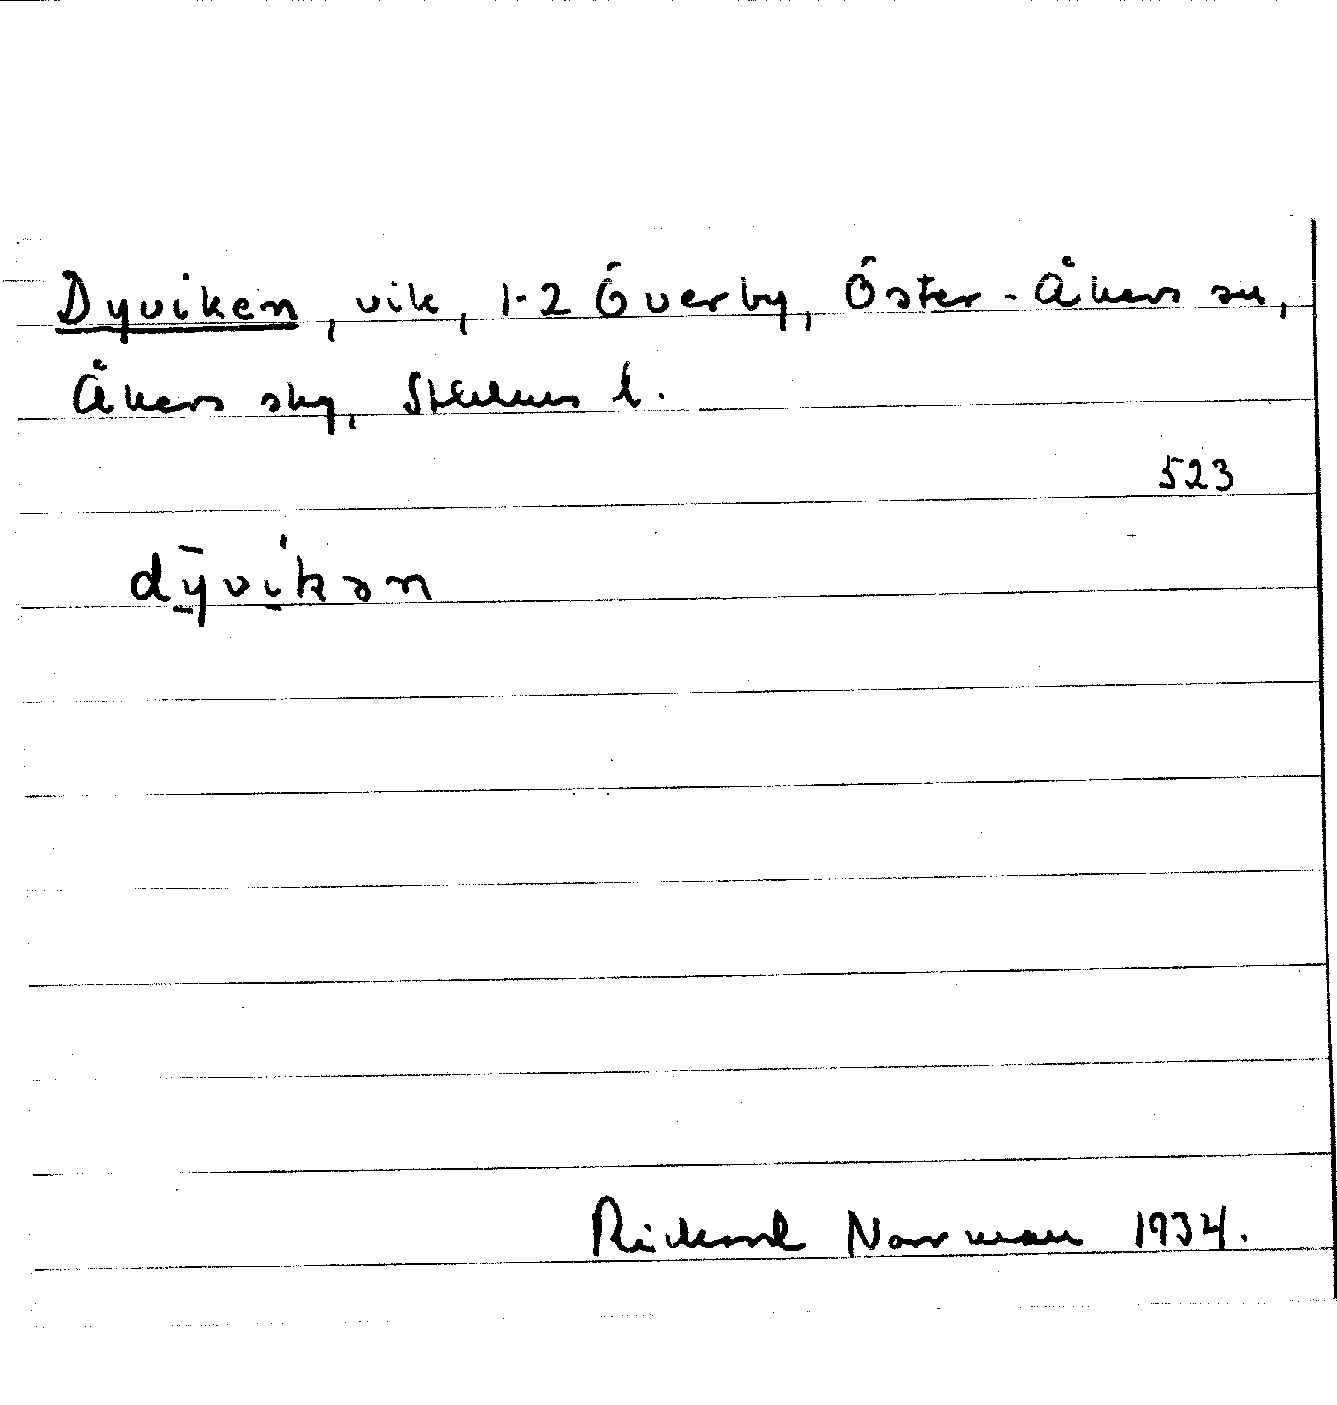 Dyviken, vik, 1-2 Överby, Öster-Åkers sn,
Åkers skg, Sthlms l.
523
dȳ̠vi̠kən
Rickard Norman 1934.